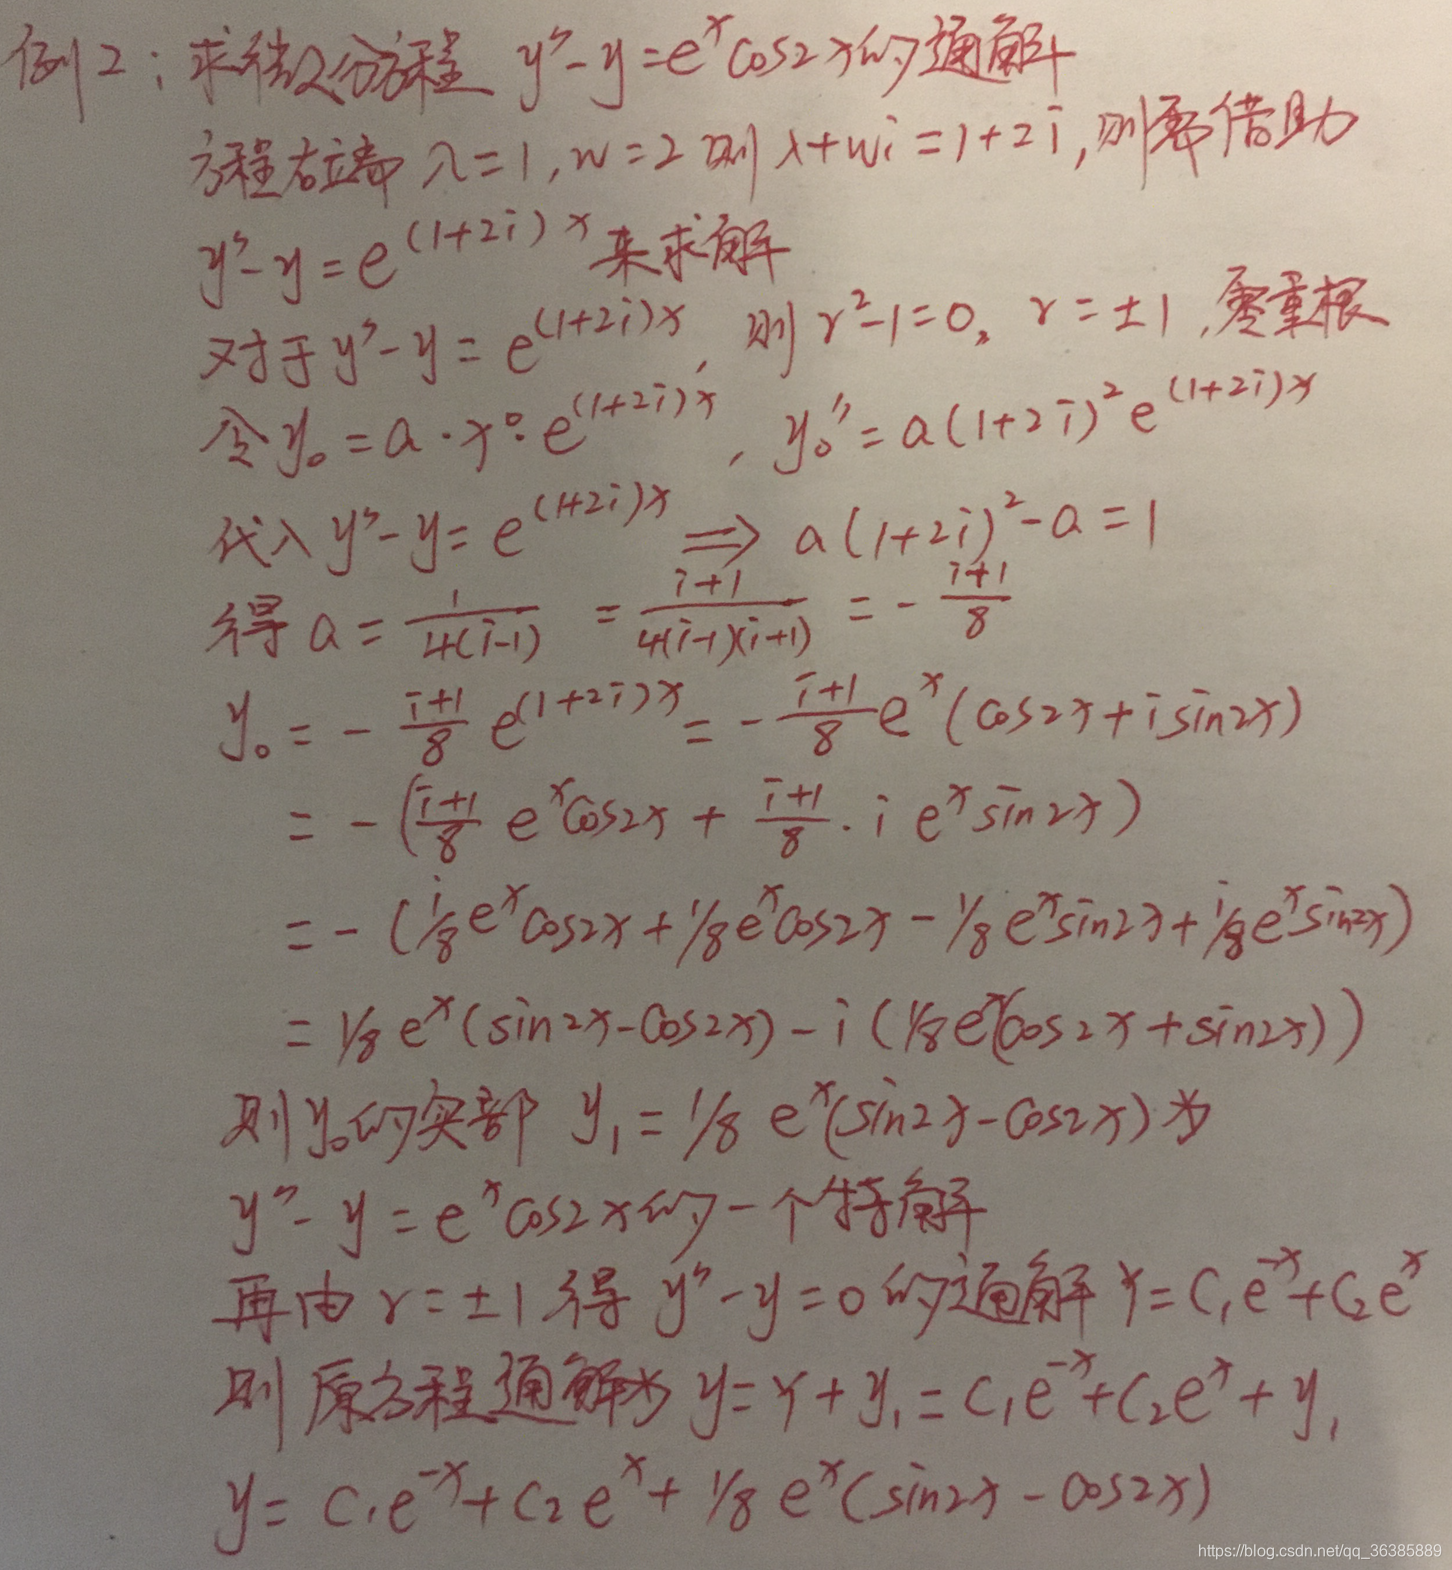 例2：求微分方程 y″-y=eˣcos2x的通解
方程右端 λ=1,w=2 则 λ+wi=1+2i,则需借助
y″-y=e^(1+2i)x 来求解
对于y″-y=e^(1+2i)x, 则 r²-1=0。 r=±1,零重根
令y₀=a·x⁰·e^(1+2i)x, y₀″=a(1+2i)²e^(1+2i)x
代入y″-y=e^(1+2i)x ⇒ a(1+2i)²-a=1
得 a=1/4(i-1) =i+1/4(i-1)(i+1) =-i+1/8
y₀=-i+1/8 e^(1+2i)x=-i+1/8 eˣ(cos2x+isin2x)
=-(i+1/8 eˣcos2x+i+1/8·i eˣsin2x)
=-(i/8eˣcos2x+1/8eˣcos2x-1/8eˣsin2x+i/8eˣsin2x)
=1/8eˣ(sin2x-cos2x)-i(1/8eˣ(cos2x+sin2x))
则y₀的实部 y₁=1/8 eˣ(sin2x-cos2x)为
y″-y=eˣcos2x的一个特解
再由r=±1得 y″-y=0的通解Y=C₁e⁻ˣ+C₂eˣ
则原方程通解为 y=Y+y₁=C₁e⁻ˣ+C₂eˣ+y₁
y=C₁e⁻ˣ+C₂eˣ+1/8 eˣ(sin2x-cos2x)
https://blog.csdn.net/qq_36385889